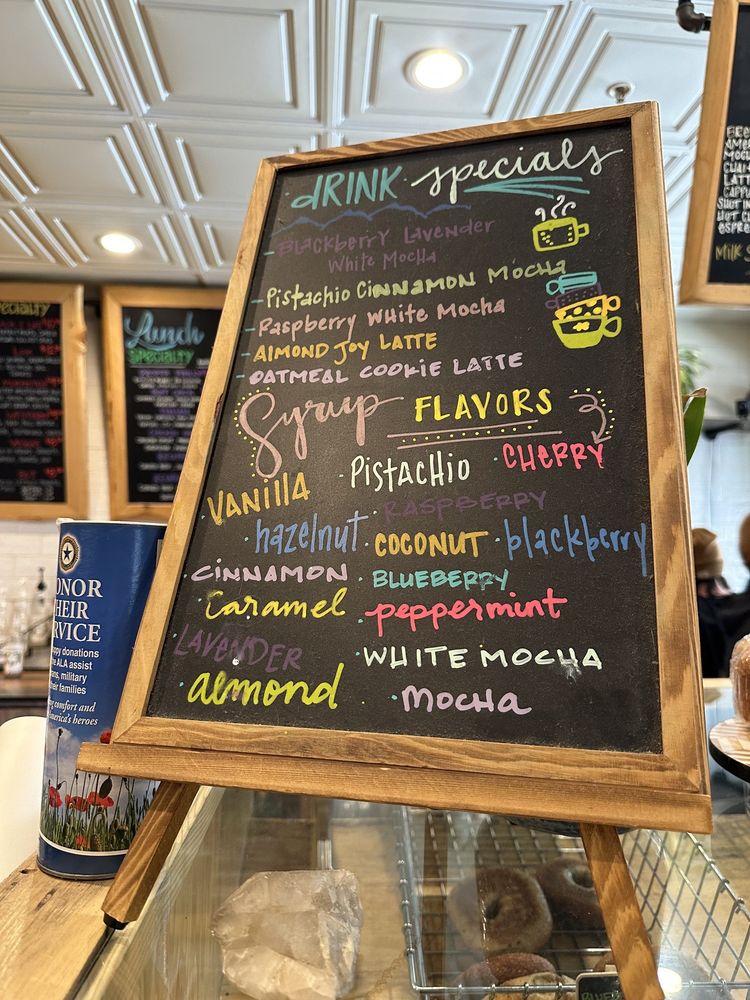 DRINK specials
- Blackberry Lavender
White Mocha
- Pistachio Cinnamon Mocha
- Raspberry White Mocha
- Almond Joy Latte
- Oatmeal Cookie Latte
Syrup FLAVORS
· Vanilla
· Pistachio
· CHERRY
· RASPBERRY
· hazelnut
· COCONUT
· blackberry
· CINNAMON
· BLUEBERRY
· Caramel
· peppermint
· LAVENDER
· WHITE MOCHA
· almond
· MOCHA
Lunch
SPECIALTY
ONOR
HEIR
RVICE
donations
he ALA assist
, military
eir families
comfort and
merica's heroes
MILK